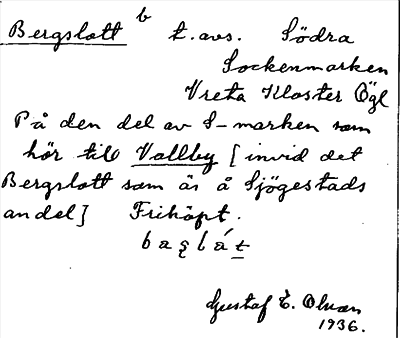 Bergslott b t. avs. Södra
Sockenmarken
Vreta Kloster Ögl
På den del av S-marken som
hör till Vallby [invid det
Bergslott som är å Sjögestads
andel] Friköpt.
Gustaf E.
1936.